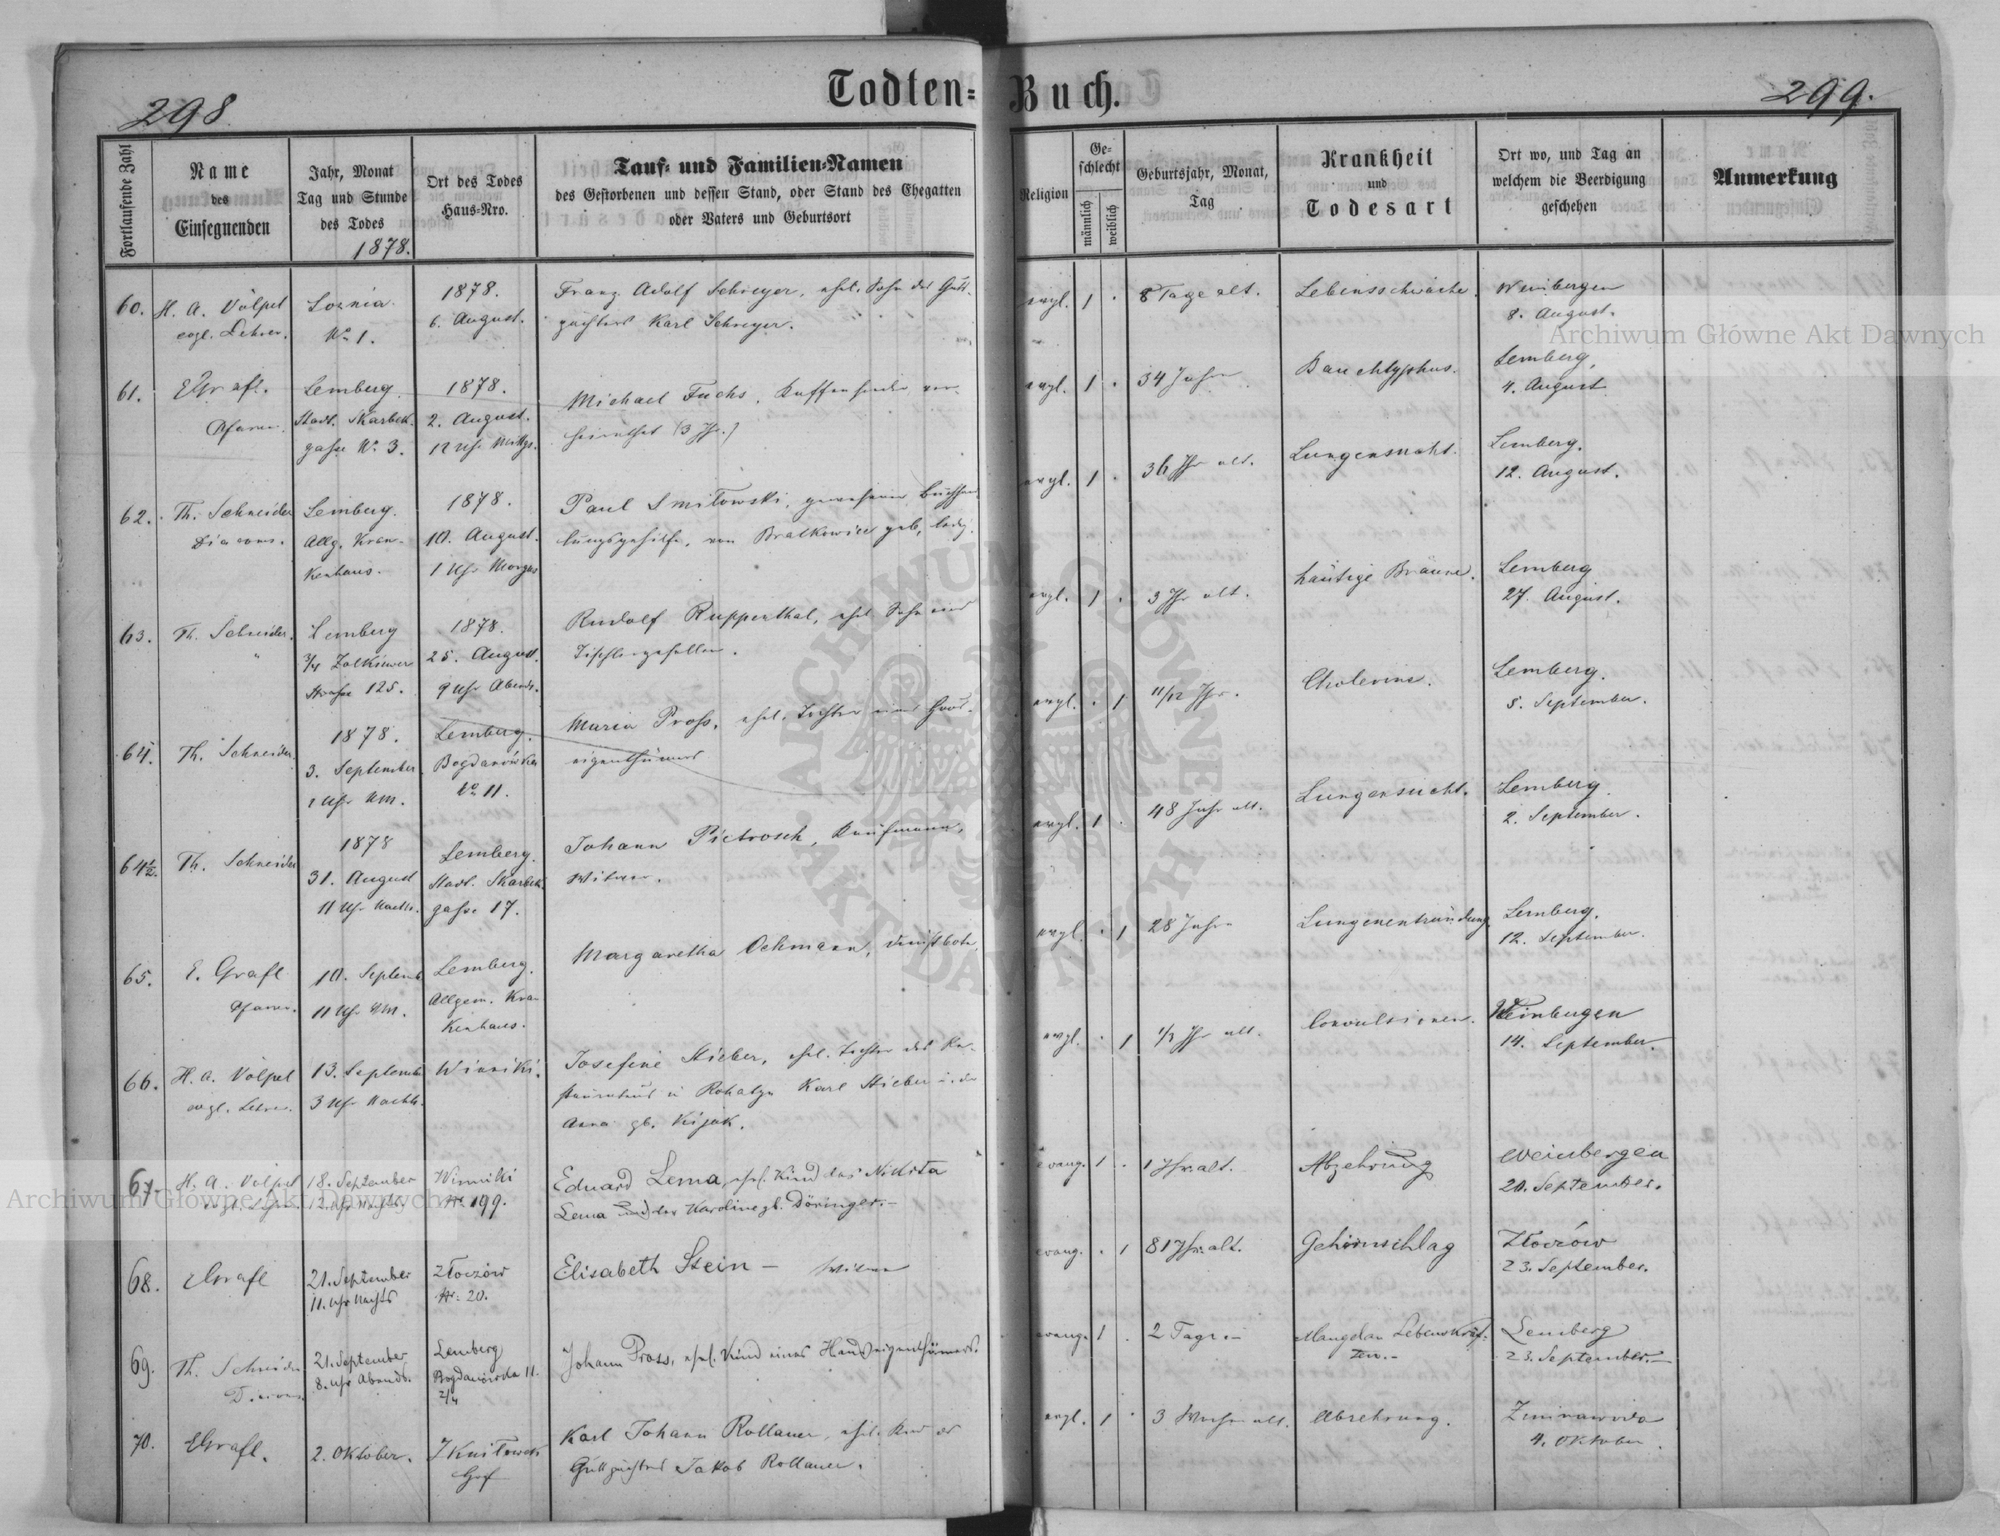 298
Todten-Buch.
299.
Fortlaufende Zahl
Name
des
Einsegnenden
Jahr, Monat
Tag und Stunde
des Todes
1878.
Ort des Todes
Haus-Nro.
Tauf- und Familien-Namen
des Gestorbenen und dessen Stand, oder Stand des Ehegatten
oder Vaters und Geburtsort
Religion
Ge-
schlecht
männlich
weiblich
Geburtsjahr, Monat,
Tag
Krankheit
und
Todesart
Ort wo, und Tag an
welchem die Beerdigung
geschehen
Anmerkung
60.
H. A. Völpel
evgl. Lehrer.
No 1.
1878.
6. August.
Franz Adolf Schreyer, ehel. Sohn des Guts-
pächters Karl Schreyer.
evgl.
1
8 Tage alt.
Lebensschwäche
Weinbergen
8. August.
61.
E. Grafl.
Pfarrer.
Lemberg.
Stadt. Skarbek-
gasse No 3.
1878.
2. August.
12 Uhr Mittgs.
Michael Fuchs, ver-
heirathet (3 Jh.)
evgl.
1
34 Jahre
Bauchtyphus.
Lemberg,
4. August
62.
Th. Schneider
Diacons.
Lemberg.
Allg. Kran-
kenhaus.
1878.
10. August.
1 Uhr Morgs
Paul Smitowski, gewesener Buchhand-
lungsgehilfe, von Bratkowice geb, ledig.
evgl.
1
36 Jhr alt.
Lungensucht.
Lemberg.
12. August.
63.
Th. Schneider.
"
Lemberg
3/4 Zolkiewer
Strasse 125.
1878.
25. August.
9 Uhr Abends.
Rudolf Rupperthal, ehel. Sohn eines
Tischlergesellen.
evgl.
1
3 Jhr alt.
häutige Bräune.
Lemberg
27. August.
64.
Th. Schneider.
1878.
3. September
1 Uhr NM.
Lemberg.
Bogdanówka
No 11.
Maria Pross, ehel. Tochter eines Haus-
eigenthümers
evgl.
1
11/12 Jhr.
Cholerine.
Lemberg.
5. September.
64½.
Th. Schneider
1878
31. August
11 Uhr Nachts.
Lemberg.
Stadt. Skarbek-
gasse 17.
Johann Pietrosch, Kaufmann,
Witwer.
evgl.
1
48 Jahr alt.
Lungensucht.
Lemberg
2. September.
65.
E. Grafl
Pfarrer.
10. Septemb
11 Uhr VM.
Lemberg.
Allgem. Kran-
kenhaus.
Margaretha Ochmann, Dienstbote.
evgl.
1
28 Jahre
Lungenentzündung
Lemberg.
12. September.
66.
H. A. Völpel
evgl. Lehrer.
13. September
3 Uhr Nachts.
Winniki.
Josefine Stieber, ehel. Tochter des Re-
staurateurs in Rohatyn Karl Stieber u. der
Anna gb. Kijak.
evgl.
1
1/2 Jhr alt.
Convulsionen.
Weinbergen
14. September.
67.
H. A. Völpel
evgl. Lehrer.
18. September
12. Uhr Nachts.
Winniki
Nr 199.
Eduard Lema, ehel. Kind des Nikita
Lema und der Karoline gb. Döringer.-
evang.
1
1 Jhr. alt.
Abzehrung
Weinbergen
20. September.
68.
E. Grafl
21. September
11. Uhr Nachts
Złoczów
Nr. 20.
Elisabeth Stein - Witwe
evang.
1
81 Jhr. alt.
Gehirnschlag
Złoczów
23. September.
69.
Th. Schneider
Diacons.
21. September
8. Uhr Abends.
Lemberg
Bogdanówka 11.
2/4
Johann Pross, ehel. Kind eines Hauseigenthümers.
evang.
1
2 Tage -
Mangel an Lebenskräf-
ten.-
Lemberg
23. September.-
70.
E. Grafl.
2. Oktober.
Hof
Karl Johann Rollauer, ehel. Kind des
Gutspächters Jakob Rollauer.
evgl.
1
3 Wochen alt.
Abzehrung.
Zimnawoda
4. Oktober.
Archiwum Główne Akt Dawnych
Archiwum Główne Akt Dawnych
ARCHIWUM GŁÓWNE
AKT DAWNYCH